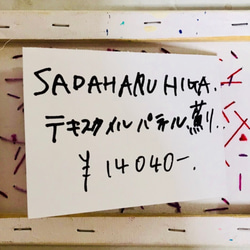 SADAHARU HIGA.
テキスタイルパネル 薫り.
¥ 14040-.